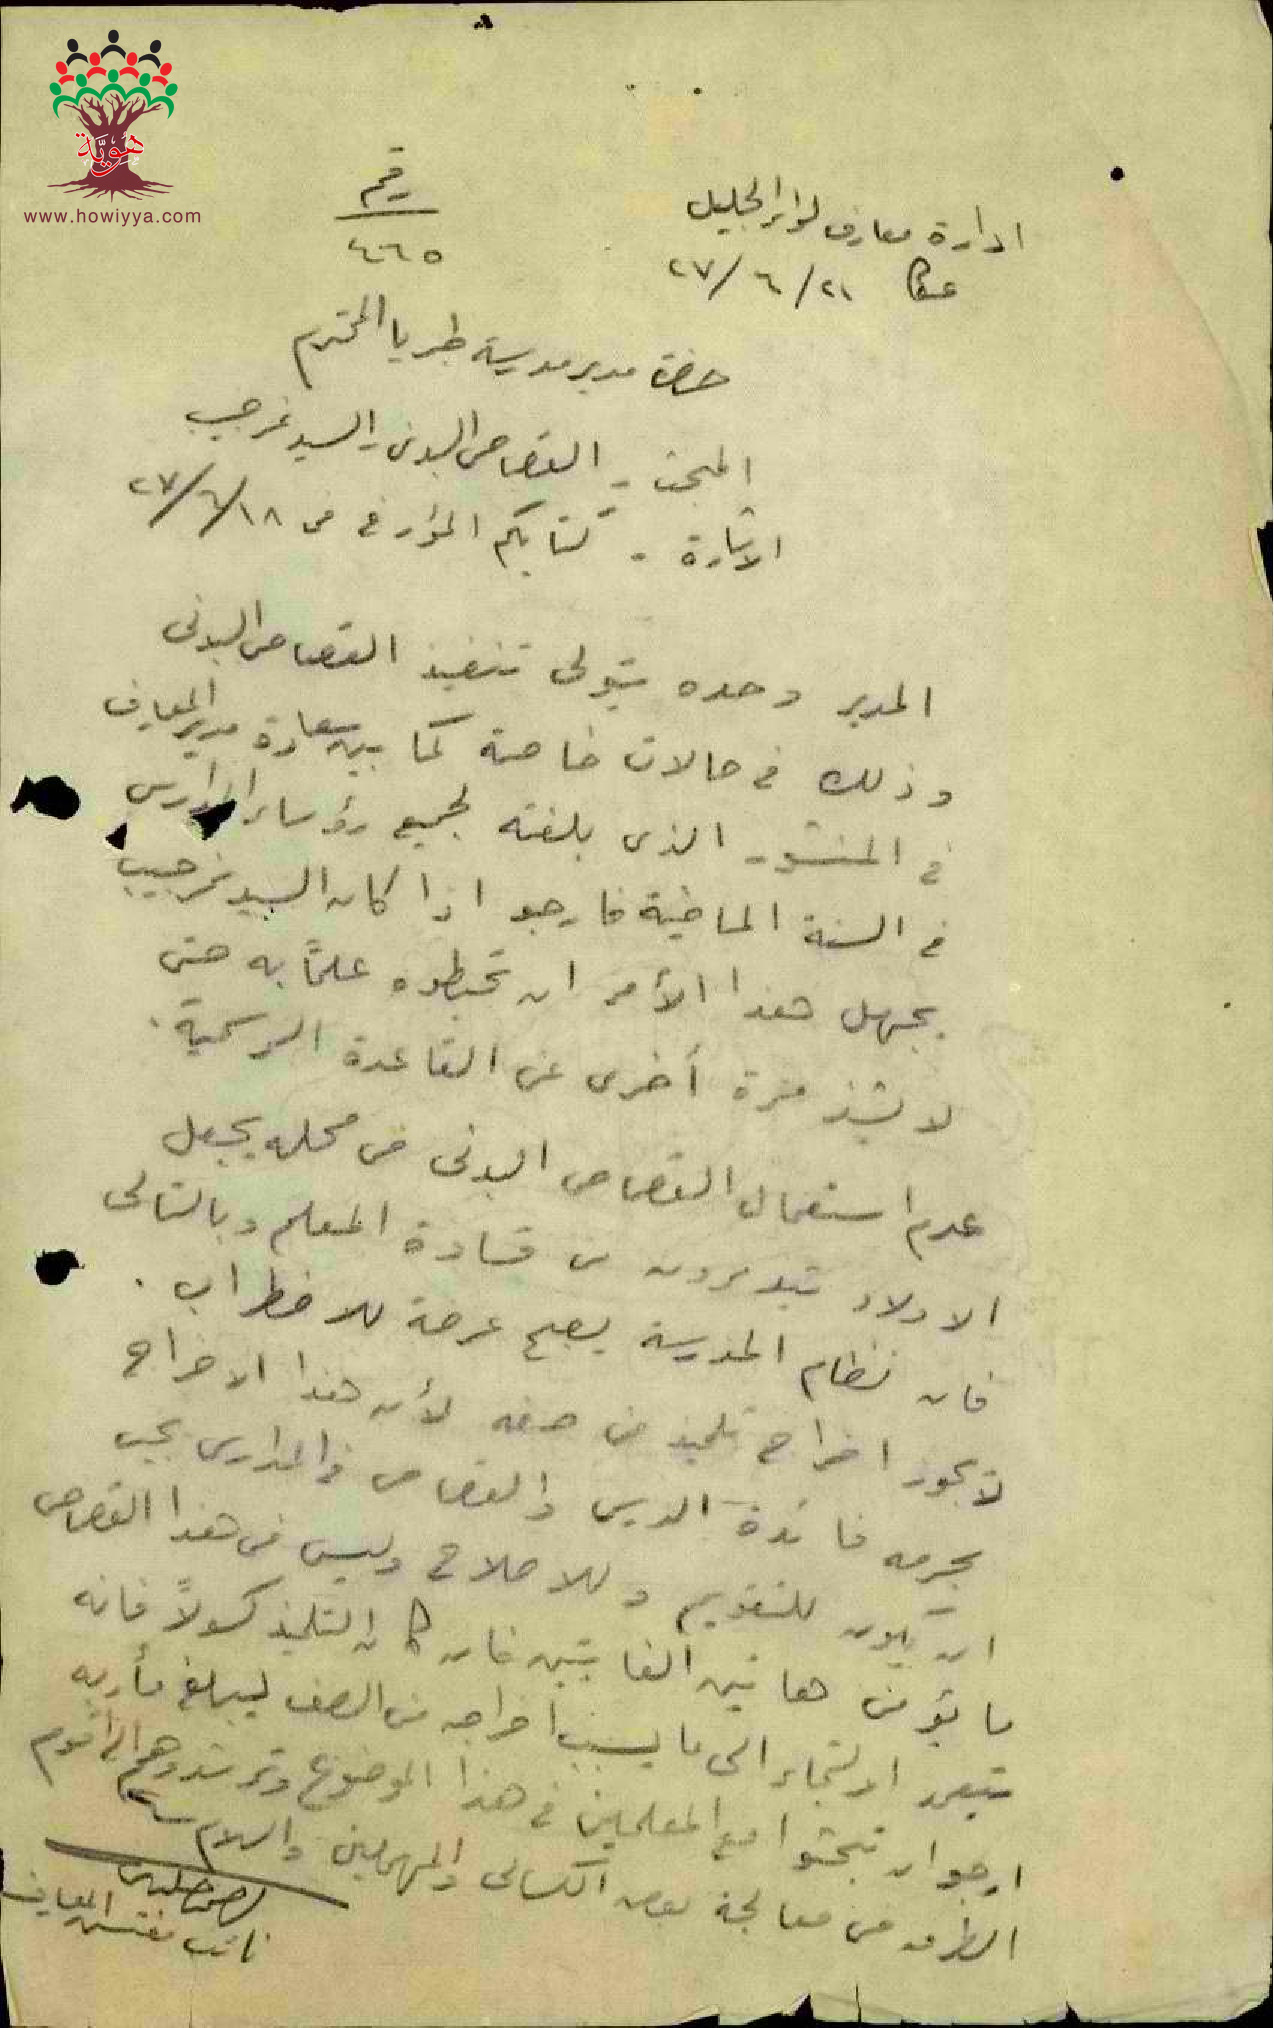 هوية
www.howiyya.com
رقم
٤٦٥
ادارة معارف لواء الجليل
عكا ٢١/٦/٢٧
حضرة مدير مدرسة طبريا المحترم
المبحث - القصاص البدنى والسيد نجيب
الاشارة - كتابكم المؤرخ فى ١٨/٦/٢٧
المدير وحده يتولى تنفيذ القصاص البدنى
وذلك فى حالات خاصة كما بين سعادة مدير المعارف
فى المنشور الذى بلغته لجميع رؤساء المدارس
فى السنة الماضية فارجو اذا كان السيد نجيب
يجهل هذا الأمر ان تحيطوه علمًا به حتى
لا يشذ مرة أخرى عن القاعدة الرسمية.
عدم استعمال القصاص البدنى فى محله يجعل
الاولاد يتذمرون من قساوة المعلم وبالتالى
فان نظام المدرسة يصبح عرضة للاضطراب.
لا يجوز اخراج تلميذ من صفه لأن هذا الاخراج
يحرمه فائدة الدرس والقصاص فى المدارس يجب
ان يكون للتقويم وللاصلاح وليس فى هذا القصاص
ما يؤمن هاتين الغايتين فان كان التلميذ كسولاً فانه
يتعمد الالتجاء الى ما يسبب اخراجه من الصف ليبلغ مأربه
ارجو ان تبحثوا مع المعلمين فى هذا الموضوع وترشدوهم الى اقوم
الطرق فى معالجة بعض الكسالى والمهملين والسلام
نائب مفتش المعارف